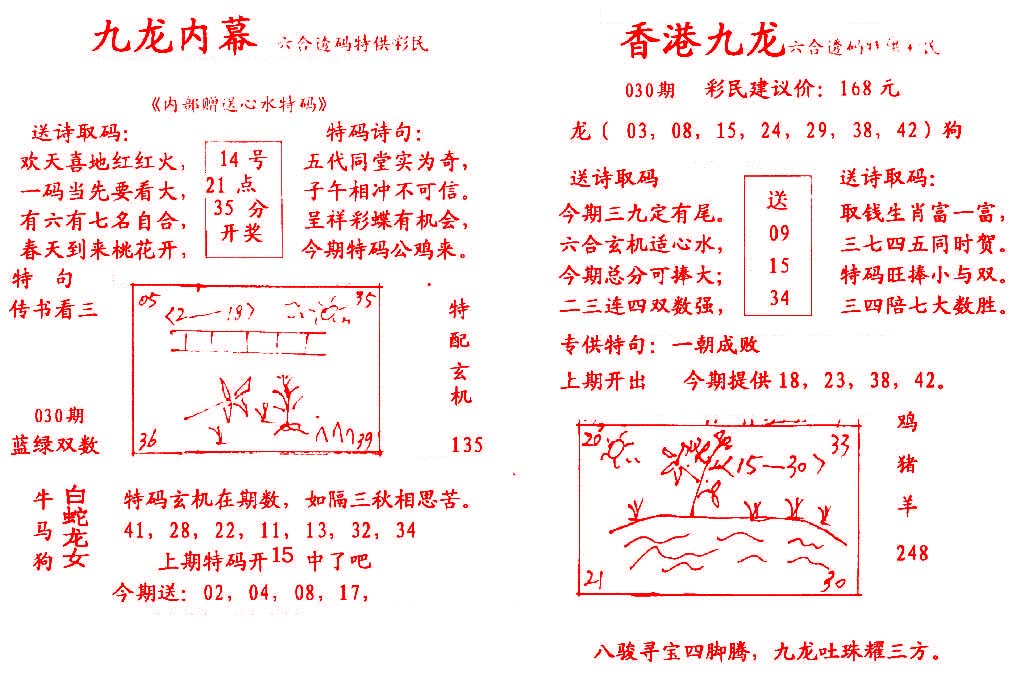 九龙内幕 六合透码特供彩民
《内部赠送心水特码》
送诗取码：
欢天喜地红红火，
一码当先要看大，
有六有七名自合，
春天到来桃花开，
14号
21点
35分
开奖
特码诗句：
五代同堂实为奇，
子午相冲不可信。
呈祥彩蝶有机会，
今期特码公鸡来。
特 句
传书看三
030期
蓝绿双数
05
35
〈2—19〉
36
39
特
配
玄
机
135
牛
马
狗
白蛇龙女
特码玄机在期数，如隔三秋相思苦。
41，28，22，11，13，32，34
上期特码开15中了吧
今期送：02，04，08，17，
香港九龙 六合透码特供彩民
030期 彩民建议价：168元
龙（ 03，08，15，24，29，38，42）狗
送诗取码
今期三九定有尾。
六合玄机适心水，
今期总分可捧大；
二三连四双数强，
送
09
15
34
送诗取码：
取钱生肖富一富，
三七四五同时贺。
特码旺捧小与双。
三四陪七大数胜。
专供特句：一朝成败
上期开出 今期提供18，23，38，42。
20
33
〈15—30〉
21
30
鸡
猪
羊
248
八骏寻宝四脚腾，九龙吐珠耀三方。